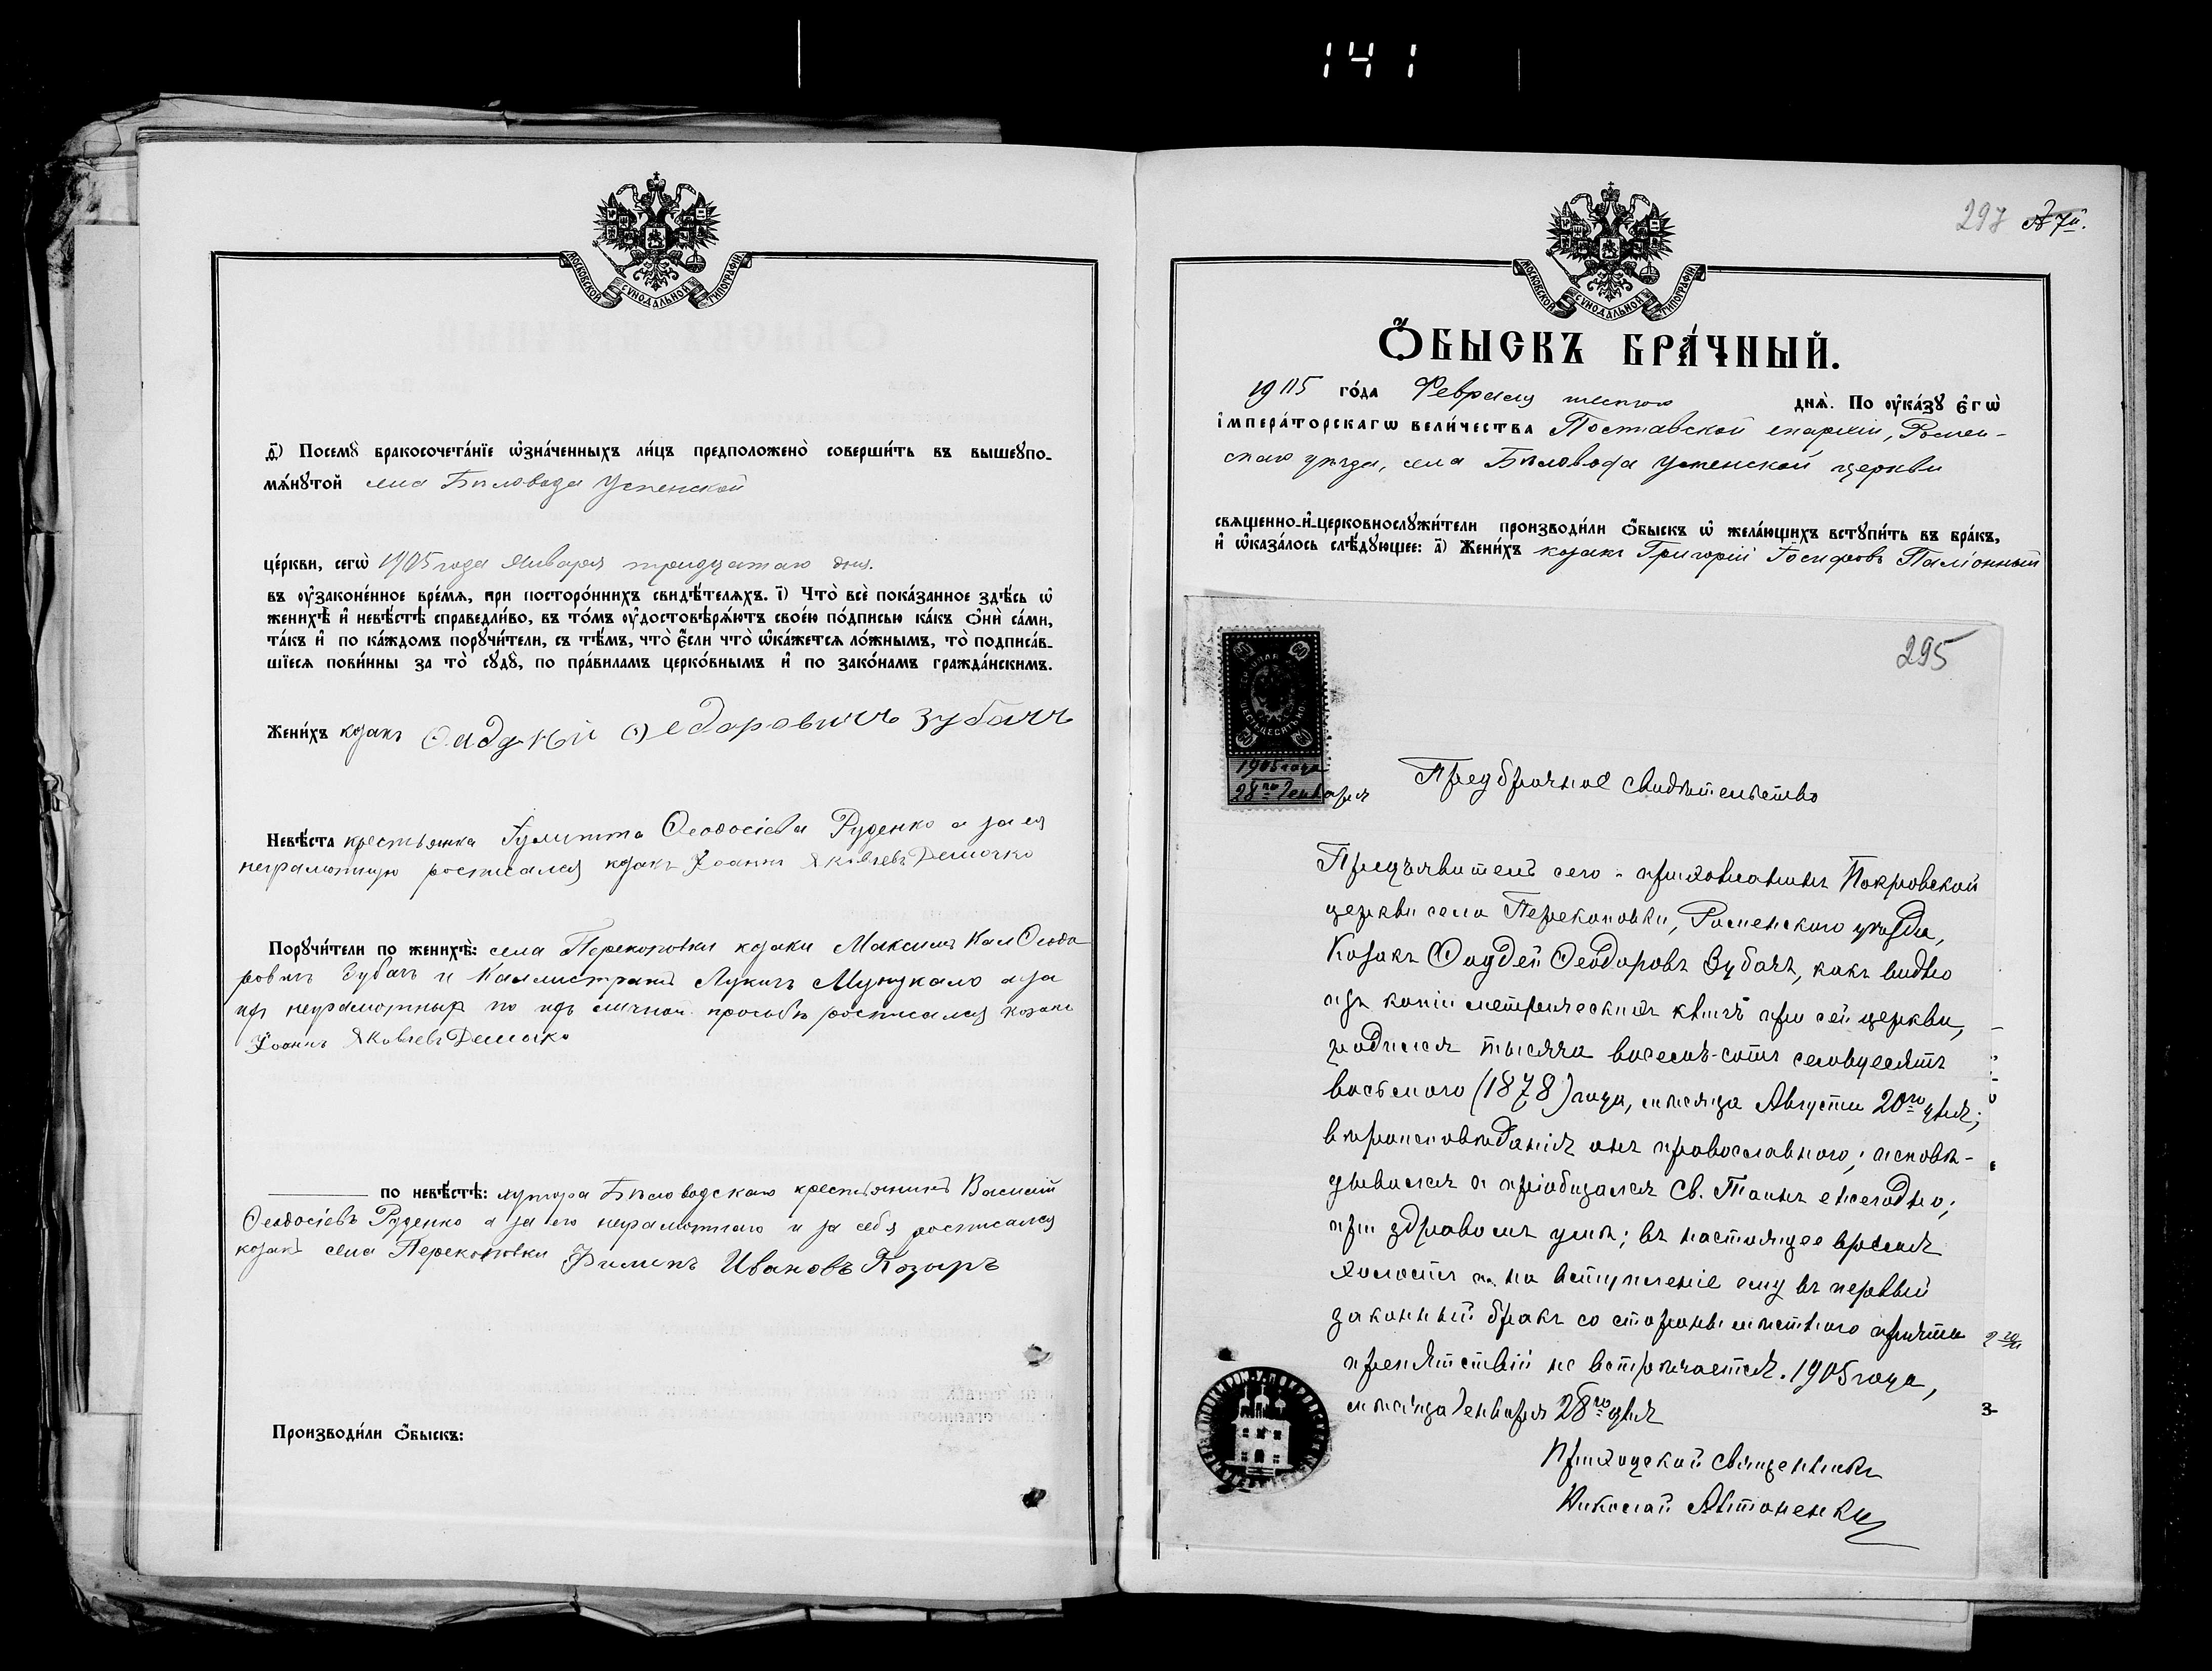 141
МОСКОВСКОЙ СУНОДАЛЬНОЙ ТИПОГРАФІИ
д҃) Посемꙋ̀ бракосочета́нїе ѡ҆зна́ченныхъ ли́цъ предположено̀ соверши́ть въ вышеꙋпо-
мѧ́нꙋтой села Бѣловода Успенской
це́ркви, сегѡ̀ 1905 года Января тридцатаго дня.
въ ᲂу҆зако́ненное вре́мѧ, при посторо́ннихъ свидѣ́телѧхъ. і҃) Что̀ всѐ пока́занное здѣ́сь ѡ҆
женихѣ̀ и҆ невѣ́стѣ справедли́во, въ то́мъ ᲂу҆достовѣрѧ́ютъ свое́ю по́дписью ка́къ ѻ҆нѝ са́ми,
та́къ и҆ по ка́ждомъ порꙋчи́тели, съ тѣ́мъ, что̀ є҆́сли что̀ ѡ҆ка́жетсѧ ло́жнымъ, то̀ подписа́в-
шїесѧ пови́нны за то̀ сꙋдꙋ̀, по пра́виламъ церко́внымъ и҆ по зако́намъ гражда́нскимъ.
Жени́хъ козакъ Ѳаддей Ѳедоровичъ Зубачъ
Невѣ́ста крестьянка Iулитта Ѳеодосіева Руденко а за ея
неграмотную росписался козакъ Іоаннъ Яковлевъ Демочко
Порꙋчи́тели по женихѣ̀: села Перекоповки козаки Максимъ Ѳеодо
ровичъ Зубачъ и Каллистратъ Лукичъ а за
ихъ неграмотныхъ по ихъ личной прозьбѣ росписался козакъ
Іоаннъ Яковлевъ Демочко
по невѣ́стѣ: хутора Бѣловодскаго крестьянинъ Василій
Ѳеодосіевъ Руденко а за его неграмотнаго и за себя росписался
козакъ села Перекоповки Филипъ Ивановъ Козыръ
Производи́ли ѻ҆́быскъ:
297 № 7й.
МОСКОВСКОЙ СУНОДАЛЬНОЙ ТИПОГРАФІИ
Ѻ҆́БЫСКЪ БРА́ЧНЫЙ.
1905 го́да Февраля шестого днѧ̀. По ᲂу҆ка́зꙋ є҆гѡ̀
і҆мпера́торскагѡ вели́чества Полтавской епархіи, Ромен-
скаго уѣзда, села Бѣловода Успенской церкви
свѧще́нно-и҆-церковнослꙋжи́тели производи́ли ѻ҆́быскъ ѡ҆ жела́ющихъ встꙋпи́ть въ бра́къ,
и҆ ѡ҆каза́лось слѣ́дꙋющее: а҃) Жени́хъ козакъ Григорій Іосифовъ Паліонный
295
60 60
ШЕСТЬДЕСЯТЪ КОП
60 60
1905 года
28го Генваря
Предбрачное свидѣтельство
Предъявитель сего - прихожанинъ Покровской
церкви села Перекоповки, Роменского уѣзда,
Козакъ Ѳаддей Ѳеодоровъ Зубачъ, какъ видно
изъ копіи метрическихъ книгъ при сей церкви,
родился тысяча восемь-сотъ семьдесятъ
восьмого (1878) года, мѣсяца Августа 20го дня;
вѣроисповѣданія онъ православнаго; исповѣ-
дывался и пріобщался Св. Таинъ ежегодно;
при здравомъ умѣ; въ настоящее время
холостъ и на вступленіе ему въ первый
законный бракъ со стороны мѣстного причта
препятствій не встрѣчается. 1905 года,
мѣсяца Генваря 28го дня
Приходской Священникъ
Николай Антоненко